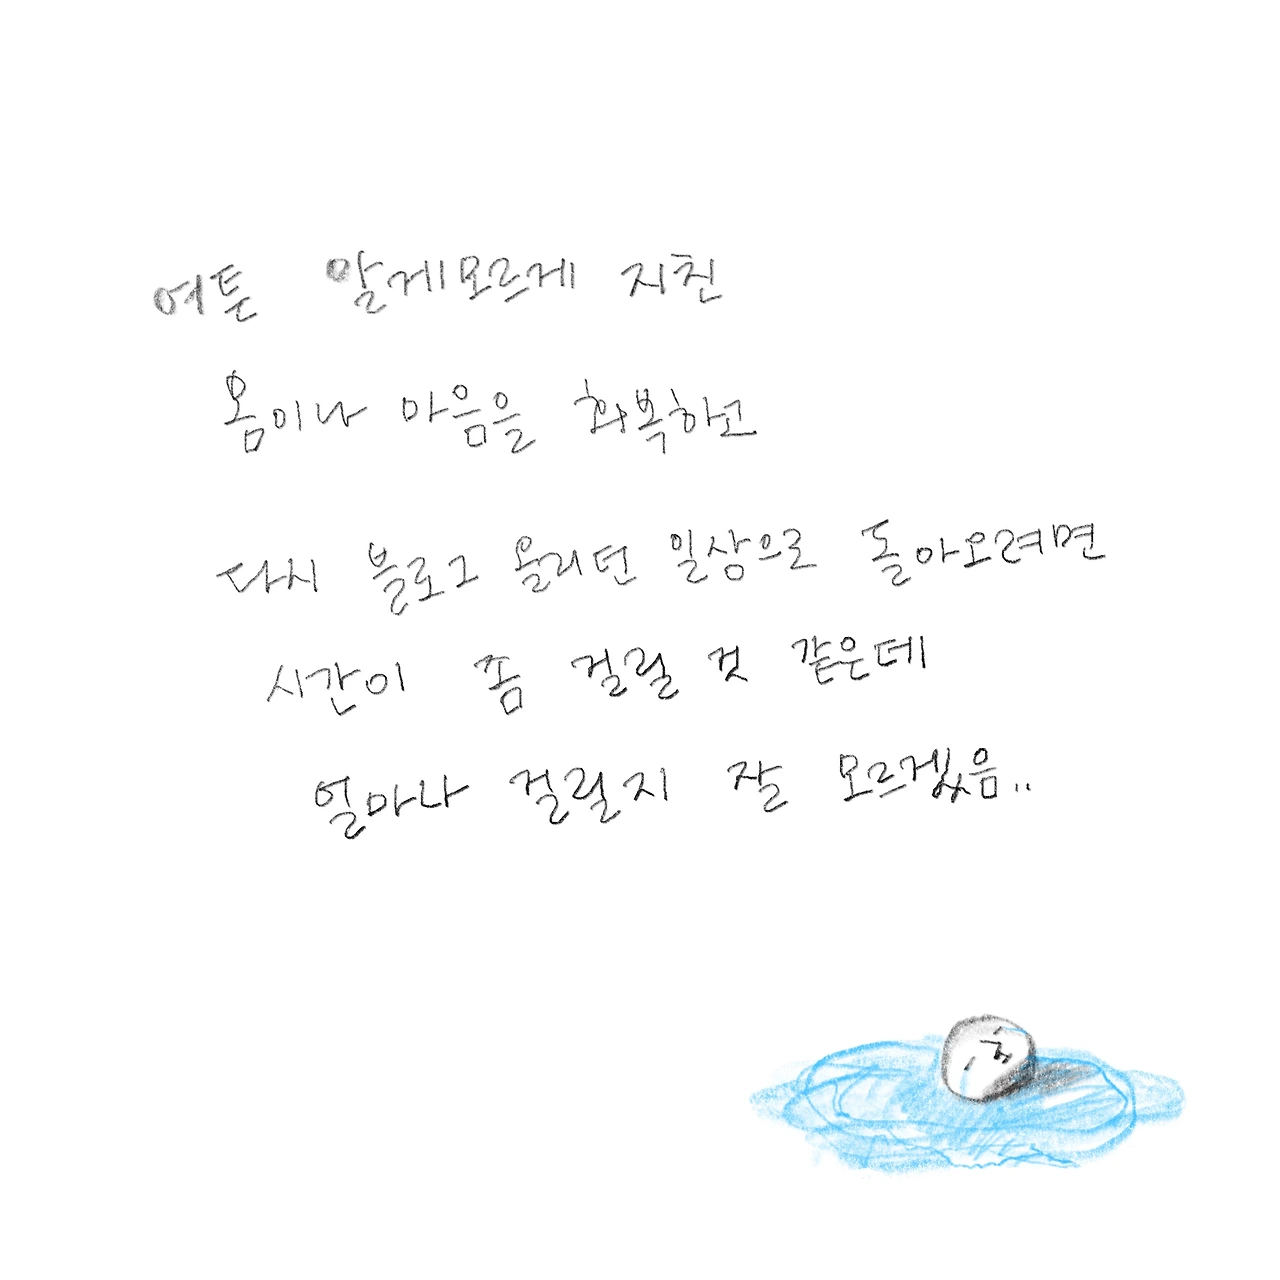 여튼 알게모르게 지친
몸이나 마음을 회복하고
다시 블로그 올리던 일상으로 돌아오려면
시간이 좀 걸릴 것 같은데
얼마나 걸릴지 잘 모르겠음..